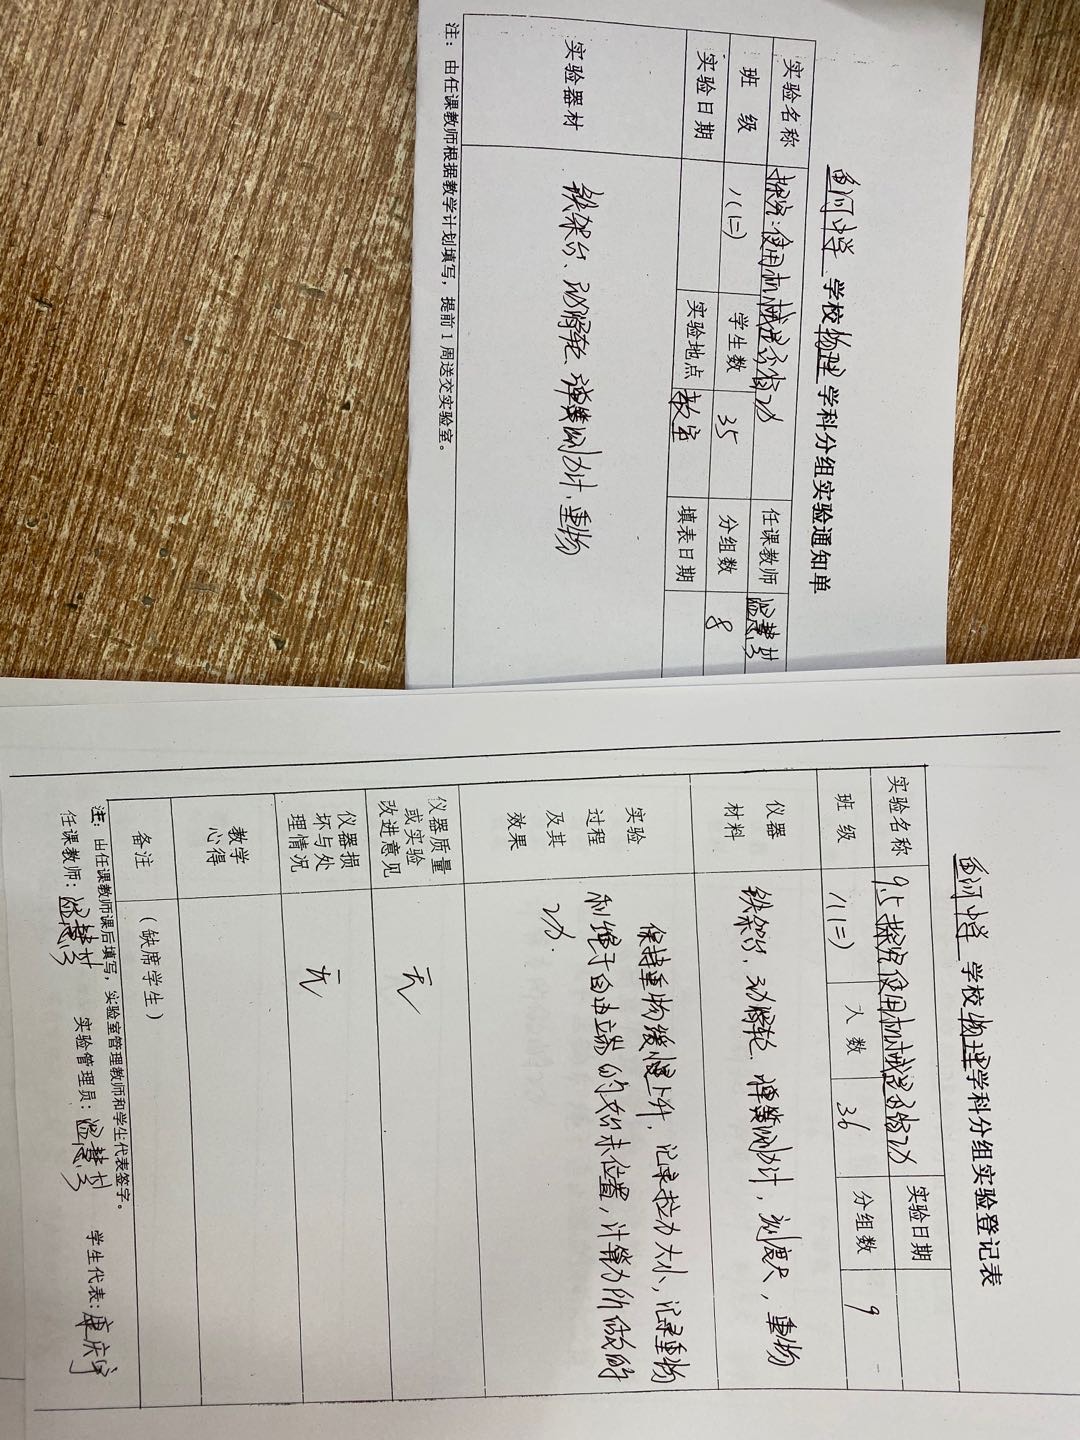 鱼河中学 学校物理学科分组实验通知单
实验名称 探究:使用机械是否省功 任课教师
班 级 八(二) 学生数 35 分组数 8
实验日期 实验地点 教室 填表日期
实验器材 铁架台、动滑轮、弹簧测力计、重物
注:由任课教师根据教学计划填写,提前1周送交实验室。
鱼河中学 学校物理学科分组实验登记表
实验名称 9.5探究使用机械是否省功 实验日期
班 级 八(二) 人 数 36 分组数 9
仪器材料 铁架台、动滑轮、弹簧测力计,刻度尺,重物
实验过程及其效果
保持重物缓慢上升,记录拉力大小,记录重物
和绳子自由端的始末位置,计算力所做的
功.
仪器质量或实验改进意见 无
仪器损坏与处理情况 无
教学心得
备注 (缺席学生)
注:由任课教师课后填写,实验室管理教师和学生代表签字。
任课教师: 实验管理员: 学生代表: